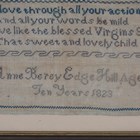 love through all your action
and all your words be mild
live like the blessed Virgins S
That sweet and lovely child
Anne Edge Age
Ten Years 1823